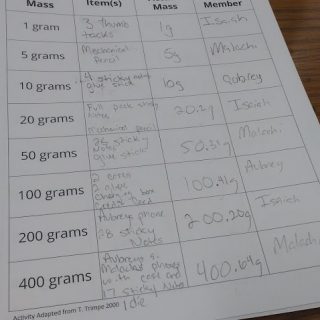 Mass Item(s) Mass Member
1 gram 3 thumb tacks 1g Isaiah
5 grams Mechanical Pencil 5g Malachi
10 grams 4 sticky glue stick 10g Aubrey
20 grams Full pack Notes Mechanical Pencil 20.2g Isaiah
50 grams 26 sticky Notes glue stick 50.31g Malachi
100 grams 2 2 glue box 100.41g Aubrey
200 grams Aubreys phone 28 sticky Notes 200.20g Isaiah
400 grams Aubreys & Malachis phones with case and 17 sticky Notes 1 die 400.69g Malachi
Activity Adapted from T. Trimpe 2000